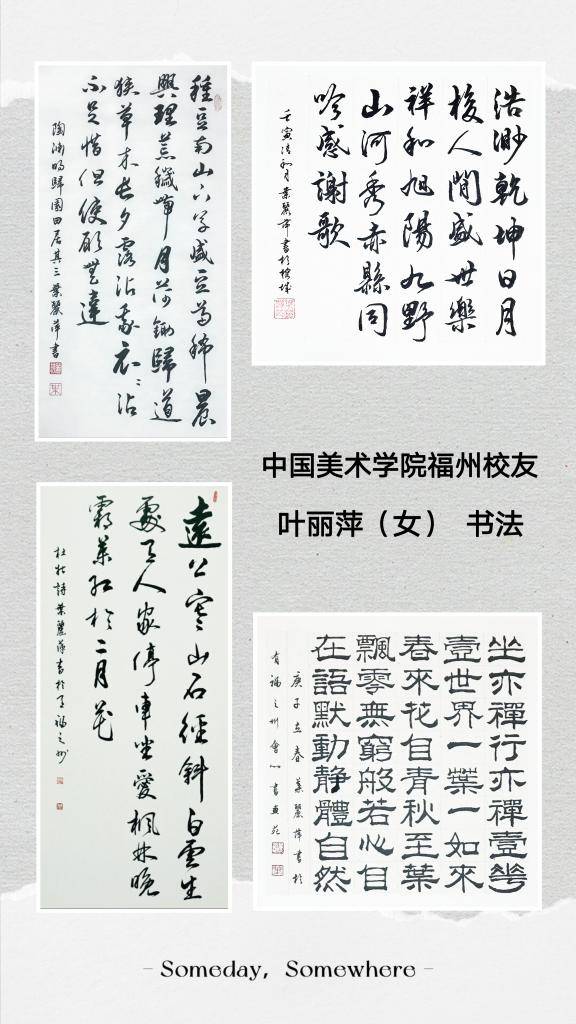 種豆南山下草盛豆苗稀晨
興理荒穢帶月荷鋤歸道
狹草木長夕露沾我衣〻沾
不足惜但使願無違
陶淵明歸園田居其三葉麗萍書
浩渺乾坤日月
梭人間盛世樂
祥和旭陽九野
山河秀赤縣同
吟感謝歌
壬寅清和月葉麗萍書於榕城
中国美术学院福州校友
叶丽萍（女） 书法
遠上寒山石徑斜白雲生
處有人家停車坐愛楓林晚
霜葉紅於二月花
杜牧詩葉麗萍書於有福之州
坐亦禪行亦禪壹華
壹世界一葉一如來
春來花自青秋至葉
飄零無窮般若心自
在語默動靜體自然
庚子立春葉麗萍書於
有福之州會心書畫苑
- Someday, Somewhere -